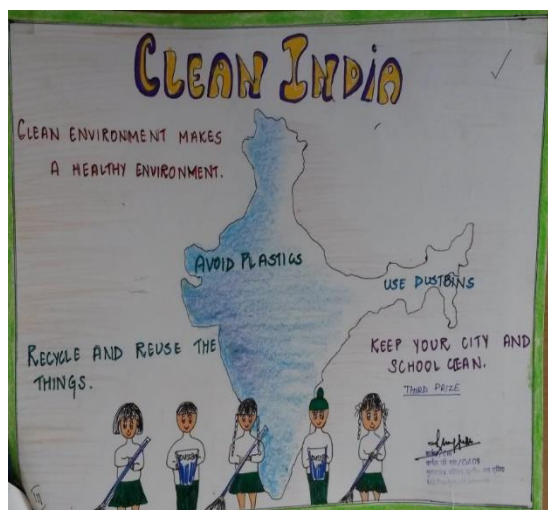 CLEAN INDIA
CLEAN ENVIRONMENT MAKES
A HEALTHY ENVIRONMENT.
AVOID PLASTICS
USE DUSTBINS
RECYCLE AND REUSE THE
THINGS.
KEEP YOUR CITY AND
SCHOOL CLEAN.
THIRD PRIZE